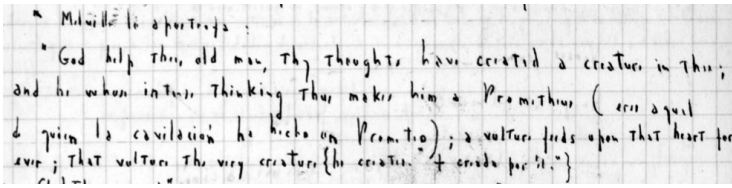 " Melville lo apostrofa :
" God help thee, old man, thy thoughts have created a creature in thee ;
and he whose intense thinking thus makes him a Prometheus ( eres aquel
a quien la cavilación ha hecho un Prometeo) ; a vulture feeds upon that heart for
ever ; that vulture the very creature {he creates." + creada por él."}